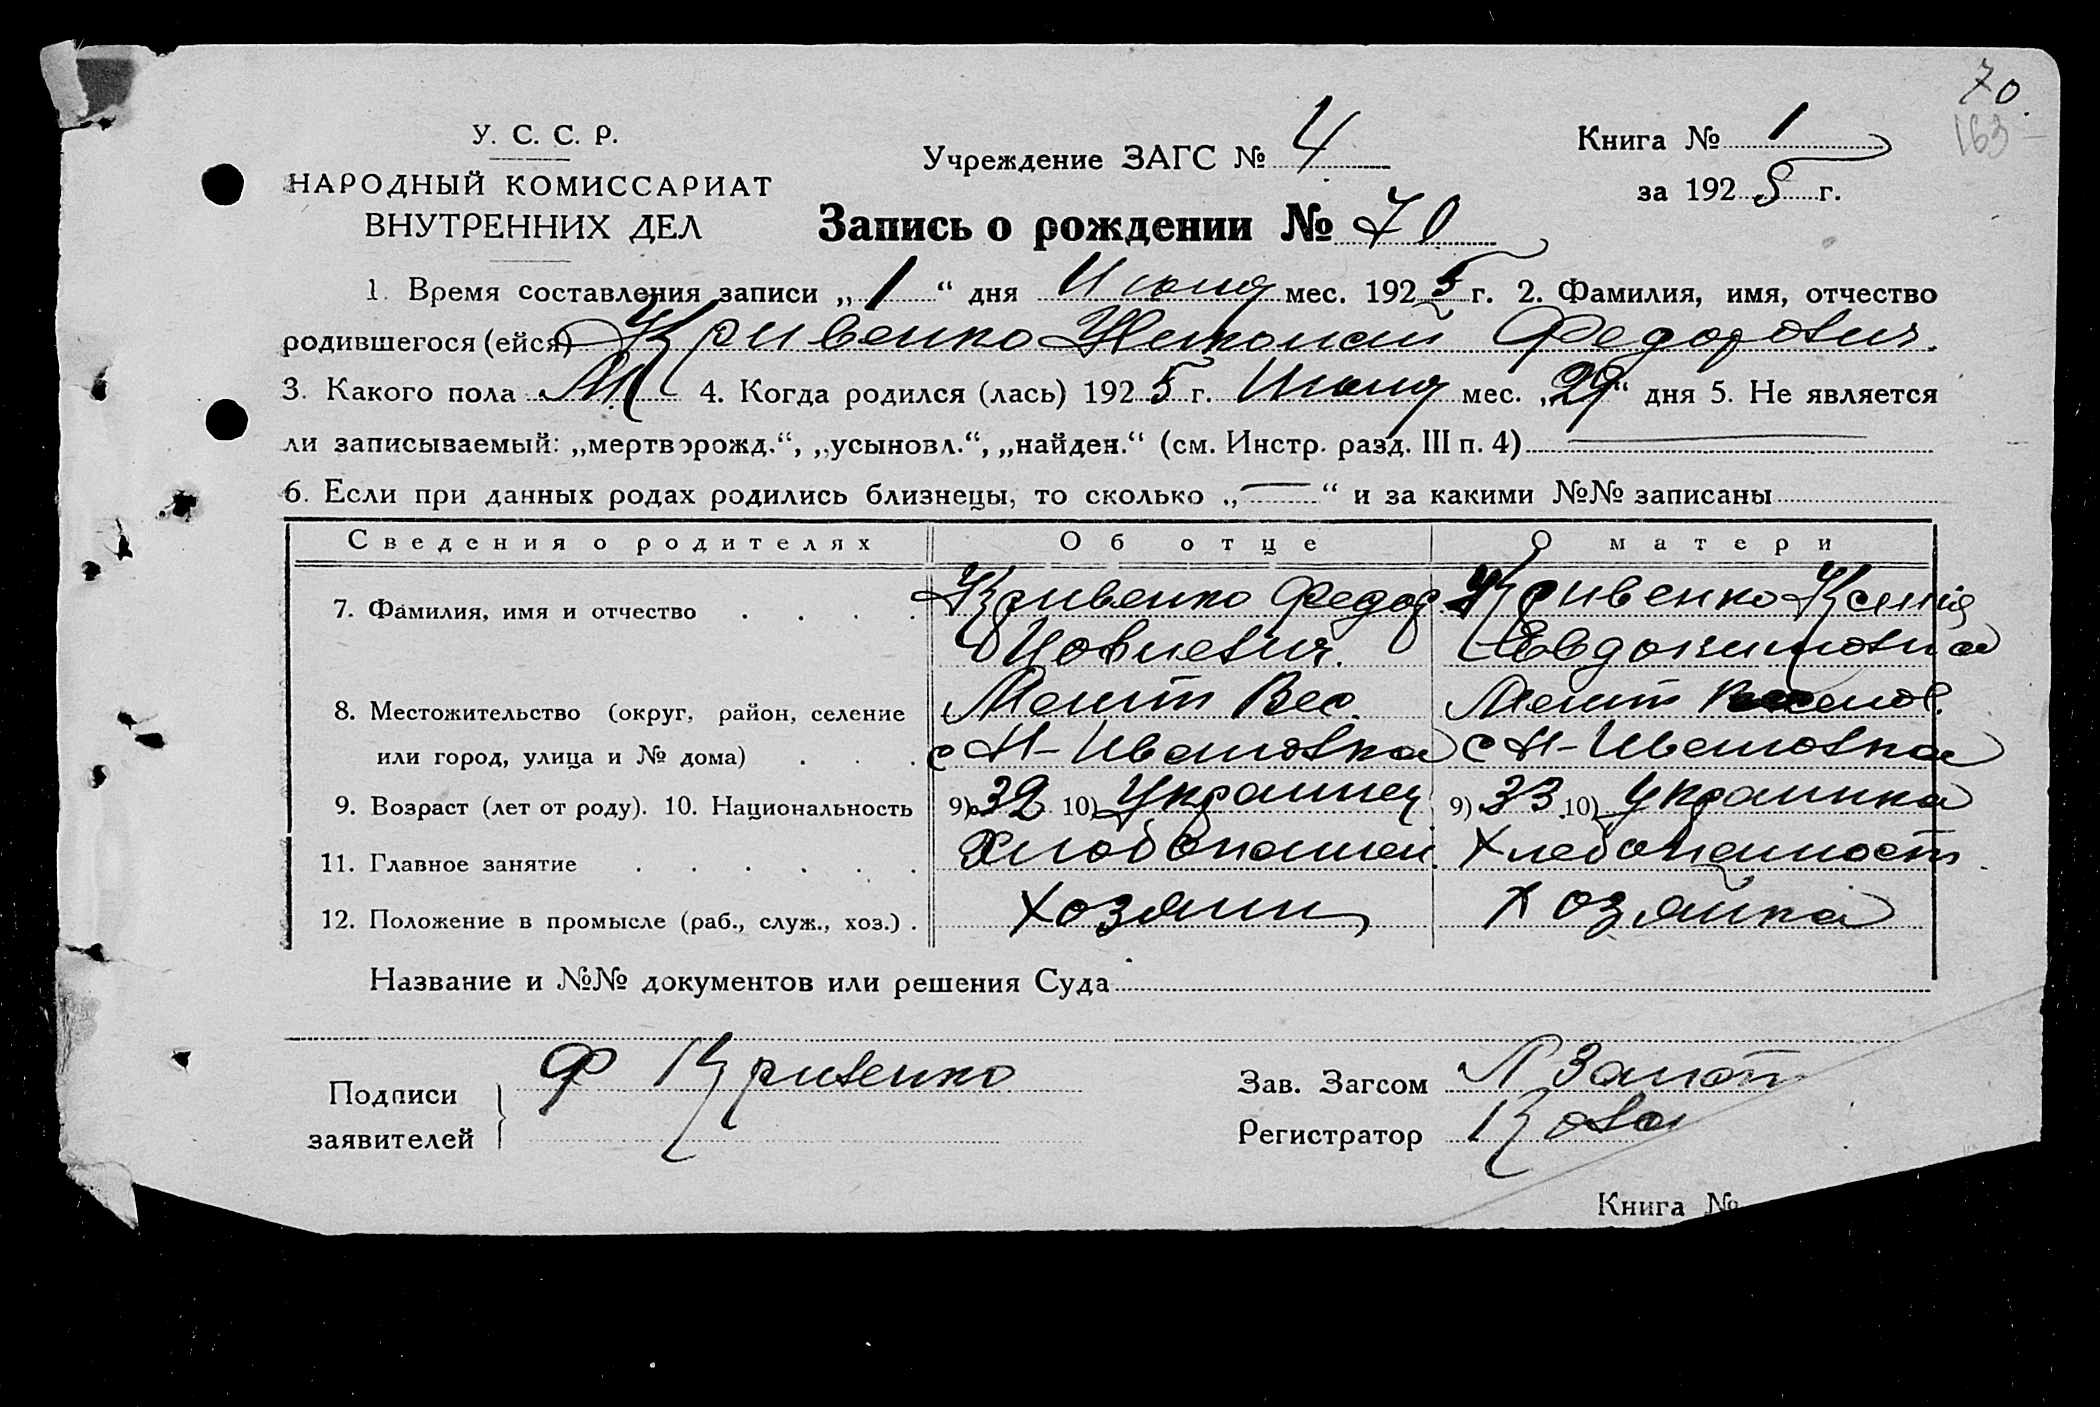 70
163
У. С. С. Р.
НАРОДНЫЙ КОМИССАРИАТ
ВНУТРЕННИХ ДЕЛ
Учреждение ЗАГС № 4
Книга № 1
за 1925 г.
Запись о рождении № 70
1. Время составления записи „1“ дня Июля мес. 1925 г. 2. Фамилия, имя, отчество
родившегося (ейся) Кривенко Федорович
3. Какого пола М 4. Когда родился (лась) 1925 г. мес. „29“ дня 5. Не является
ли записываемый: „мертворожд.“, „усыновл.“, „найден.“ (см. Инстр. разд. III п. 4)
6. Если при данных родах родились близнецы, то сколько „—“ и за какими №№ записаны
Сведения о родителях Об отце О матери
7. Фамилия, имя и отчество Кривенко Федор Кривенко Ксения
Иовлевич Евдокимовна
8. Местожительство (округ, район, селение Мелит Вес. Мелит
или город, улица и № дома) с Н-Ивановка с Н-Ивановка
9. Возраст (лет от роду). 10. Национальность 9) 32 10) Украинец 9) 33 10) Украинка
11. Главное занятие Хлебопашец Хлебопашест
12. Положение в промысле (раб., служ., хоз.) Хозяин Хозяйка
Название и №№ документов или решения Суда
Подписи заявителей Ф Кривенко
Зав. Загсом
Регистратор
Книга №